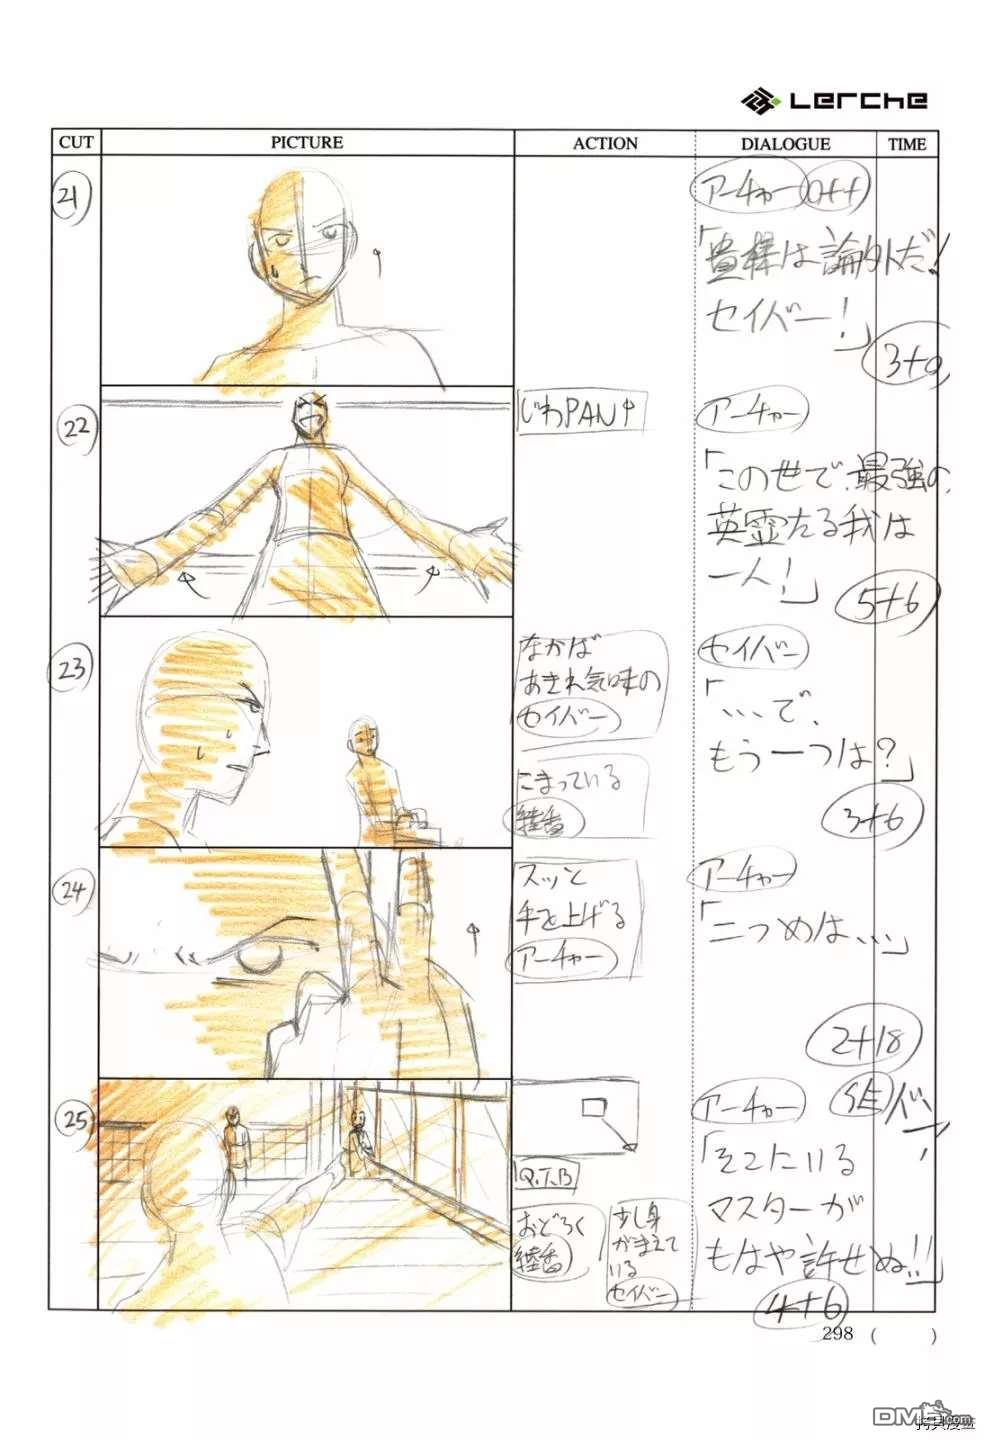 Lerche
CUT PICTURE ACTION DIALOGUE TIME
21
アーチャー off
「貴様は論外だ!
セイバー!」
3+0
22
じわPAN↑
アーチャー
「この世で、最強の、
英霊たる我は
一人!」
5+6
23
なかば
あきれ気味の
セイバー
こまっている
綾香
セイバー
「…で、
もう一つは?」
3+6
24
スッと
手を上げる
アーチャー
アーチャー
「二つめは…」
2+18
25
Q.T.B
おどろく
綾香
少し身
がまえて
いる
セイバー
アーチャー
「そこにいる
マスターが
もはや許せぬ!!」
4+6
298 ( )
拷贝漫畫